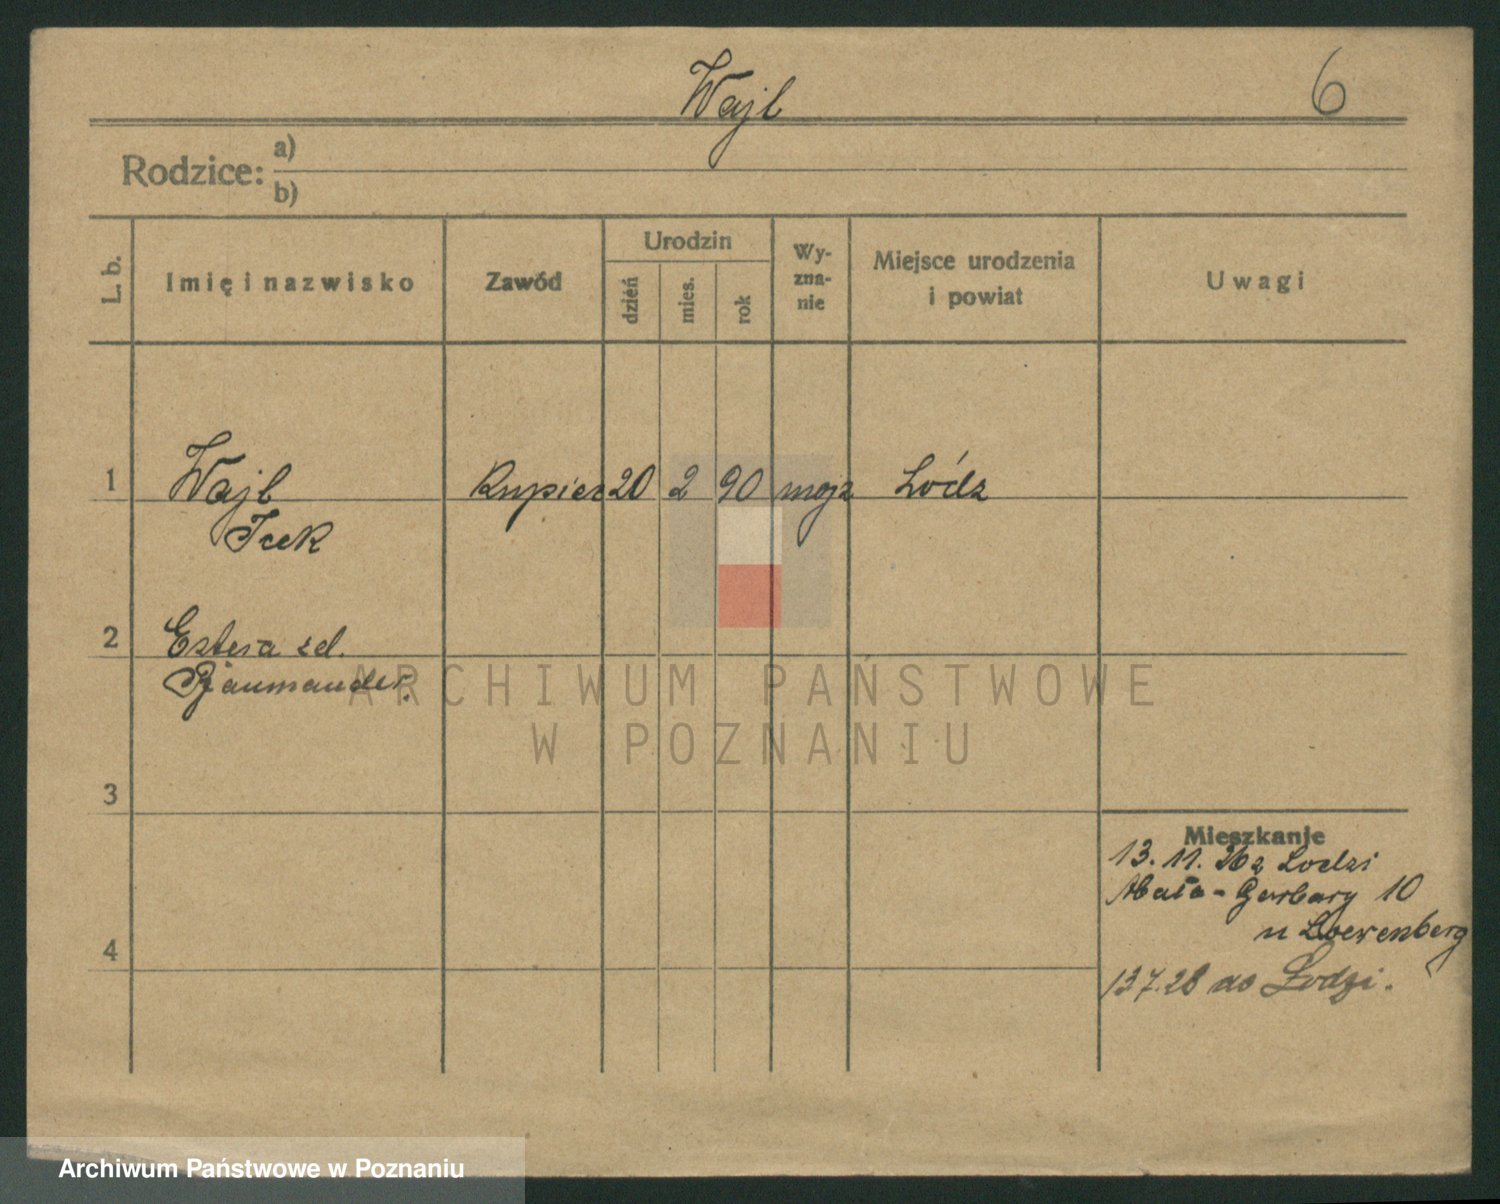 Wajl
6
Rodzice: a)
b)
L. b.
Imię i nazwisko
Zawód
Urodzin
dzień
mies.
rok
Wy-
zna-
nie
Miejsce urodzenia
i powiat
Uwagi
1 Wajl Kupiec 20 2 90 mojż Łódz
Icek
2 Estera zd.
3
4
Mieszkanie
13. 11. 26 z Lodzi
Mała-Garbary 10
u Loewenberg
13 7. 28 do Łodzi.
ARCHIWUM PAŃSTWOWE
W POZNANIU
Archiwum Państwowe w Poznaniu